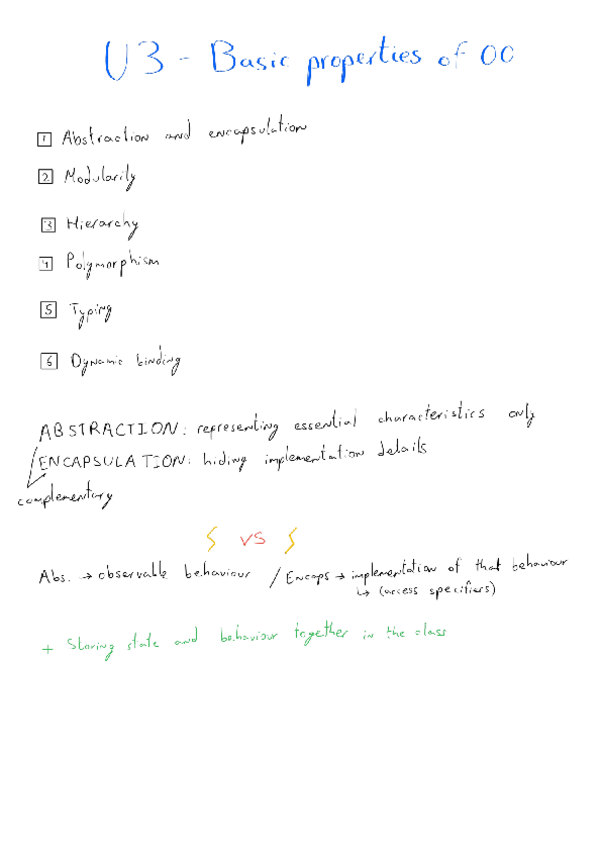 U3 - Basic properties of OO
1 Abstraction and encapsulation
2 Modularity
3 Hierarchy
4 Polymorphism
5 Typing
6 Dynamic binding
ABSTRACTION: representing essential characteristics only
ENCAPSULATION: hiding implementation details
complementary
VS
Abs. → observable behaviour / Encaps → implementation of that behaviour
↳ (access specifiers)
+ Storing state and behaviour together in the class